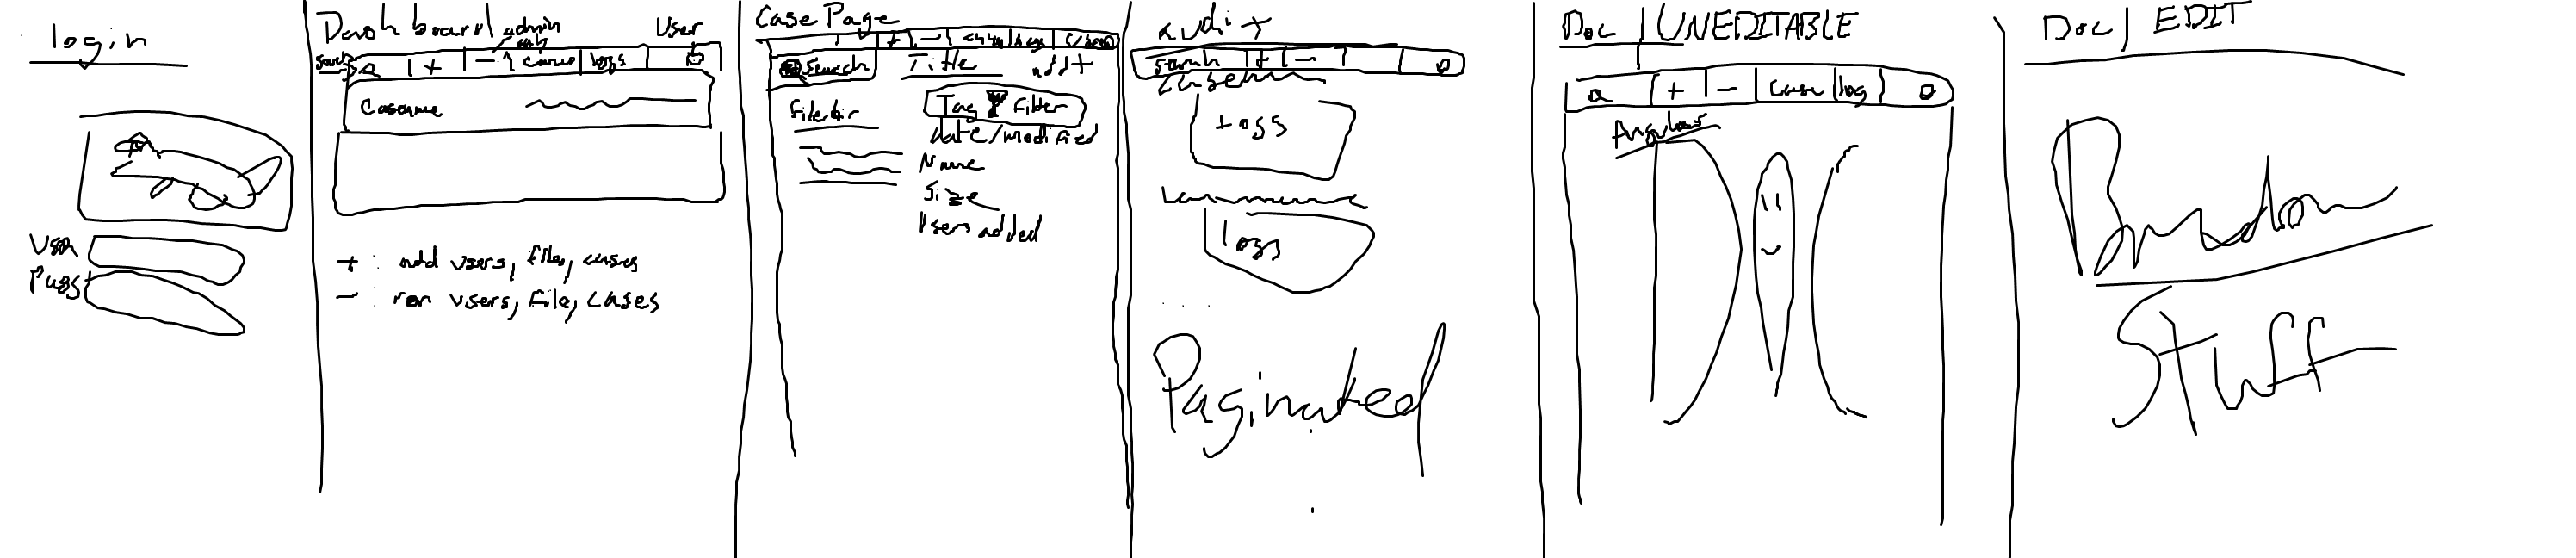 login
User
Pass
Dashboard admin
User
+ - cases logs
Casename
+ : add users, file, cases
- : rem users, file, cases
Case Page
+ -
Search Title add +
Tag Filter
date/modified
Name
Size
Users added
Audit
Search + -
logs
logs
Paginated
Doc | UNEDITABLE
+ - Case log
Angular
Doc | EDIT
Brandon
STUFF